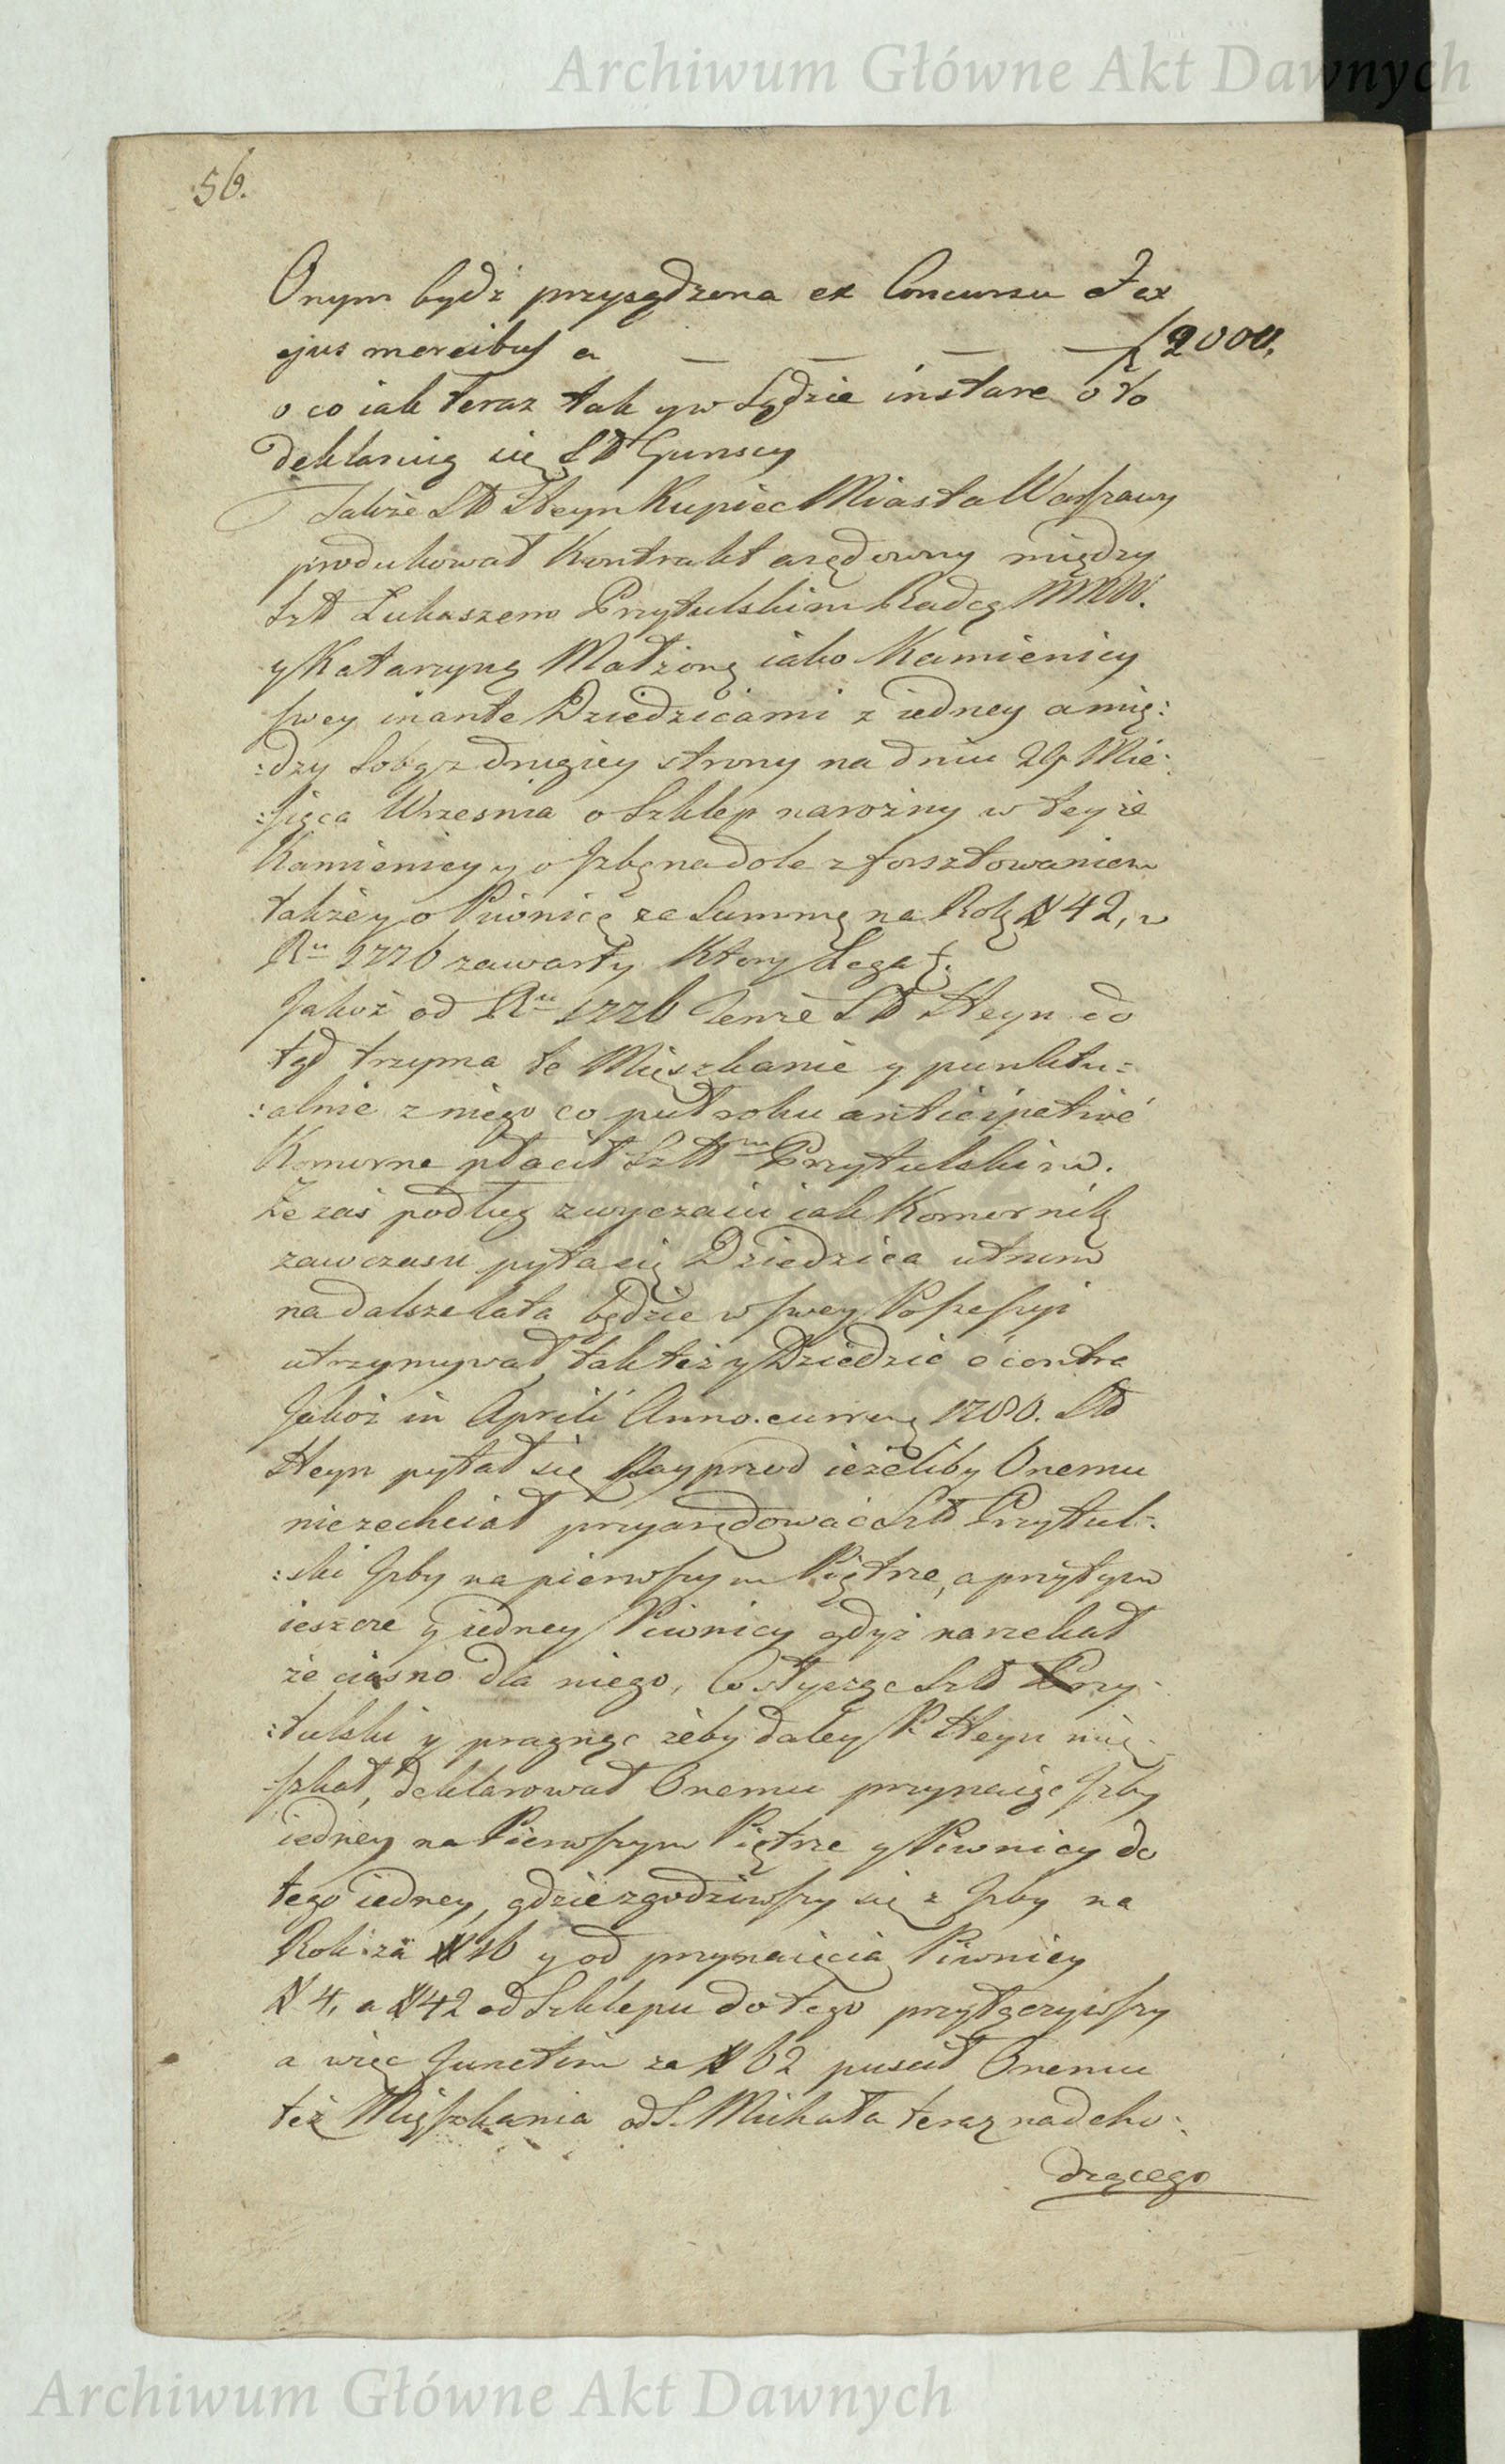 Archiwum Główne Akt Dawnych
56.
Onym bydź przysądzona ex Concursu et ex
ejus mercibus a — — — — f 2000.
o co iak teraz tak y w Sądzie instare o to
deklaruią się Sł Gunscy
Takze Sł Heyn Kupiec Miasta Warszawy
produkował Kontrakt arędowny między
Szł Łukaszem Przytulskim Radcą
y Katarzyną Małżoną iako Kamienicy
swey inante Dziedzicami z iedney a mię:
:dzy Sobą z drugiey strony na dniu 29 Mie:
:siąca Wrzesnia o Szklep narożny w teyże
Kamienicy y o Jzbę na dole z forsztowaniem
także y o Piwnicę za Summę na Rok # 42, w
Ru 1776 zawarty Ktory Legat.
Jakoż od Ru 1776 Tenże Sł Heyn do
tąd trzyma te Mięszkanie y punktu:
:alnie z niego co puł roku anticipative
Komorne płacił Szłłm Przytulskim.
Że zaś podług zwyczaiu iak Komornik
zawczasu pyta się Dziedzica utrum
na dalsze lata będzie w swey Possessyi
utrzymywał, tak też y Dziedzic e contra
Jakoż in Aprili Anno curren 1780. Sł
Heyn pytał się Nayprzod ieżeliby Onemu
niezechciał przyarędować Szł Przytul:
:ski Jzby na pierwszym Piętrze, a przytym
ieszcze y iedney Piwnicy gdyż narzekał
że ciasno dla niego, Co słysząc Szł Przy:
:tulski y pragnąc żeby daley P. Heyn mię:
szkał, deklarował Onemu przynaiąc Jzby
iedney na Pierwszym Piętrze y Piwnicy do
tego iedney, gdzie zgodziwszy się z Jzby na
Rok za # 16 y od przynaięcia Piwnicy
# 4, a # 42 od Szklepu do tego przyłączywszy
a więc Junctim za # 62 puscił Onemu
też Mięszkania od S. Michała teraz nadcho:
dzącego
Archiwum Główne Akt Dawnych